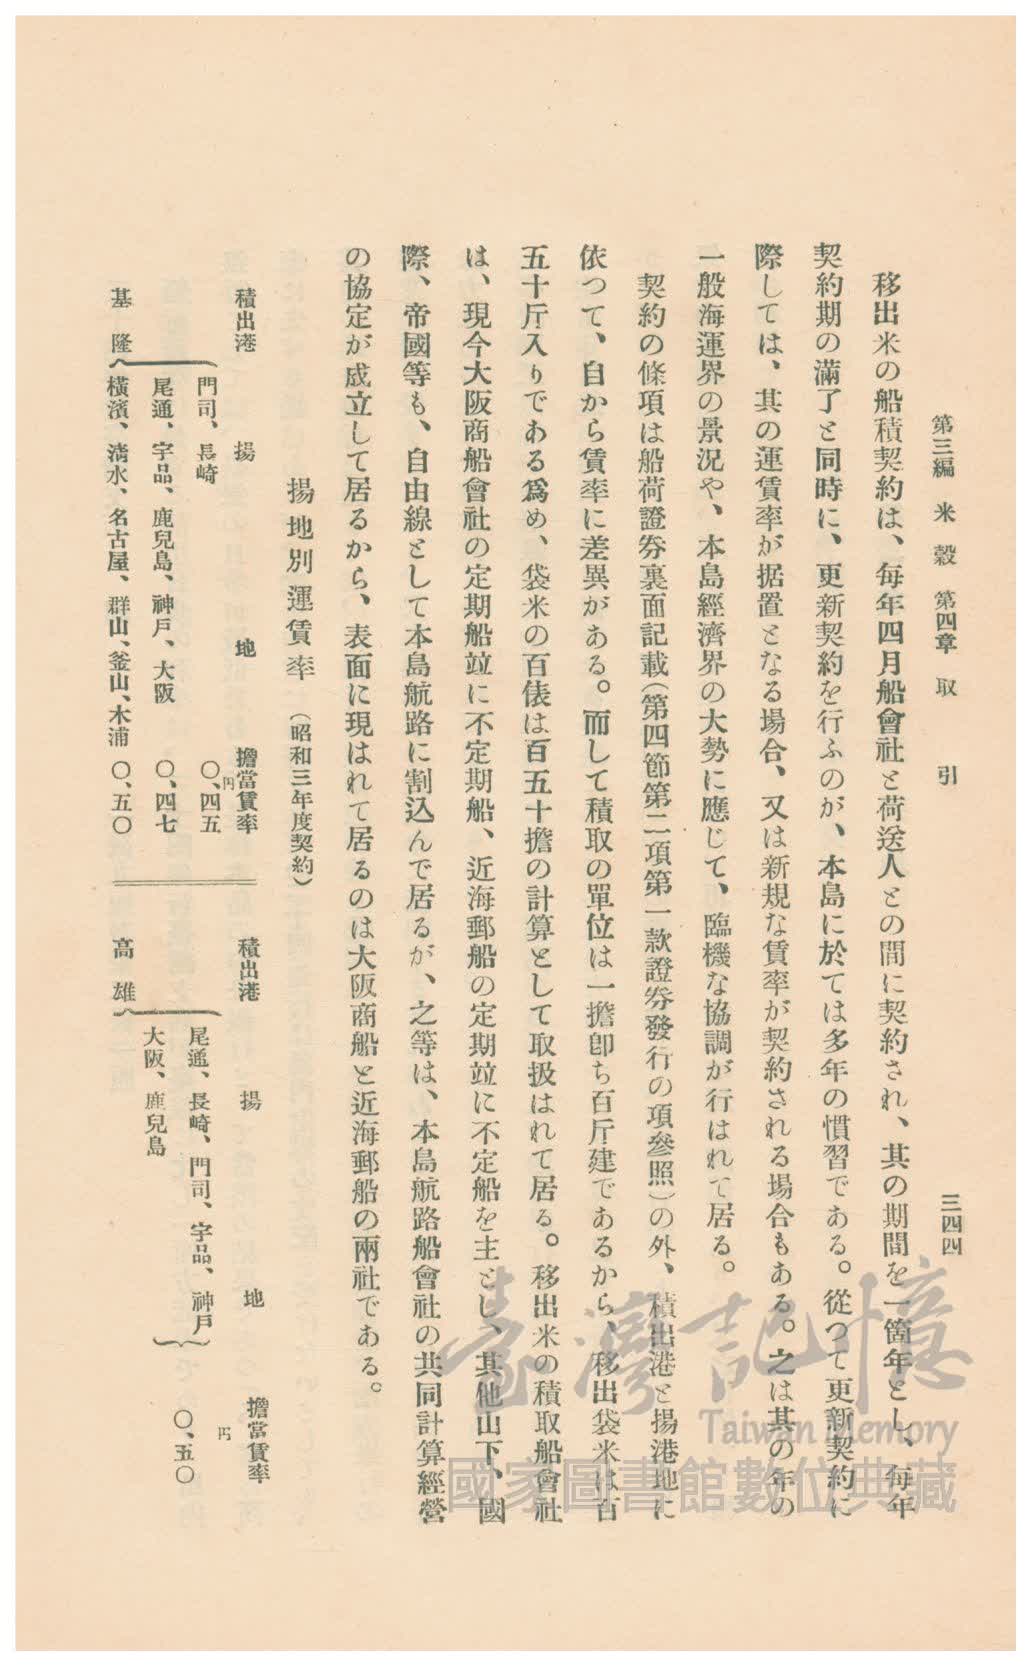 第三編 米穀 第四章 取引 三四四
移出米の船積契約は、每年四月船會社と荷送人との間に契約され、其の期間を一箇年とし、每年
契約期の滿了と同時に、更新契約を行ふのが、本島に於ては多年の慣習である。從つて更新契約に
際しては、其の運賃率が据置となる場合、又は新規な賃率が契約される場合もある。之は其の年の
一般海運界の景況や、本島經濟界の大勢に應じて、臨機な協調が行はれて居る。
契約の條項は船荷證券裏面記載(第四節第二項第一款證券發行の項參照)の外、積出港と揚港地に
依つて、自から賃率に差異がある。而して積取の單位は一擔卽ち百斤建であるから、移出袋米は百
五十斤入りである爲め、袋米の百俵は百五十擔の計算として取扱はれて居る。移出米の積取船會社
は、現今大阪商船會社の定期船竝に不定期船、近海郵船の定期竝に不定船を主とし、其他山下、國
際、帝國等も、自由線として本島航路に割込んで居るが、之等は、本島航路船會社の共同計算經營
の協定が成立して居るから、表面に現はれて居るのは大阪商船と近海郵船の兩社である。
揚地別運賃率 (昭和三年度契約)
積出港 揚地 擔當賃率
円
門司、長崎 〇、四五
尾道、宇品、鹿兒島、神戶、大阪 〇、四七
基隆 橫濱、淸水、名古屋、群山、釜山、木浦 〇、五〇
積出港 揚地 擔當賃率
円
尾道、長崎、門司、宇品、神戶 〇、五〇
大阪、鹿兒島
高雄
臺灣記憶
Taiwan Memory
國家圖書館數位典藏